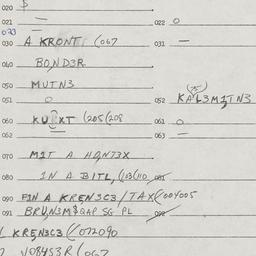 020 $
021 —
022 O
023
030 A KRONT (067
031 —
040 BO,ND3R
050 MUTN3
051 O
052 KAL3M1TN3
060 KU KT (205(208
061 O
062 —
063 —
070 M1T A HO,NT3X
080 1N A B1TL, (103(110
081
090 F1N A KRE,N3C3/TAX(004005
091 BRU,N3M$QAP SG PL
092
KRE,N3C3(072090
VO84S3R(067